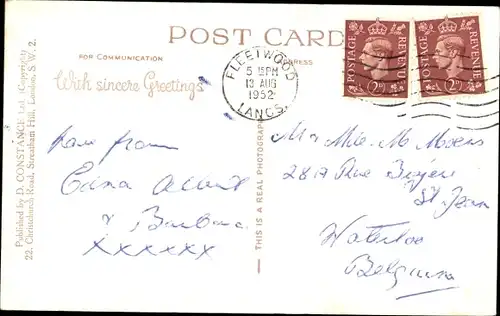 POST CARD
FOR COMMUNICATION
ADDRESS
With sincere Greetings
FLEETWOOD
5 15PM
13 AUG
1952
LANCS.
POSTAGE REVENUE
2D
POSTAGE REVENUE
2D
Published by D. CONSTANCE Ltd. (Copyright)
22, Christchurch Road, Streatham Hill, London, S.W.2.
THIS IS A REAL PHOTOGRAPH
Love from
Edna
& Barbara
XXXXXX
M
281A Rue
St Jean
Waterloo
Belgium